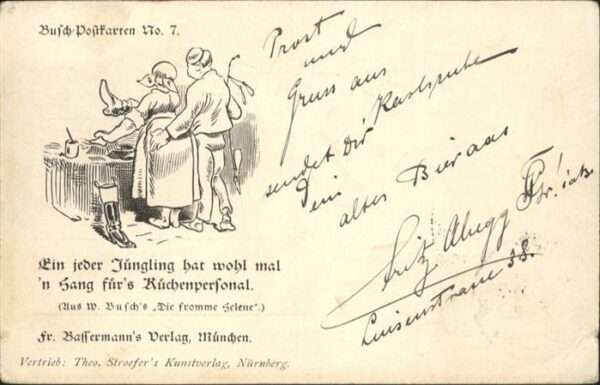 Busch-Postkarten No. 7.
Ein jeder Jüngling hat wohl mal
'n Hang für's Küchenpersonal.
(Aus W. Busch's „Die fromme Helene“.)
Fr. Bassermann's Verlag, München.
Vertrieb: Theo. Stroefer's Kunstverlag, Nürnberg.
Prost
und
Gruss aus
Karlsruhe
sendet Dir
Dein
alter Bieraas
Fritz
Luisenstrasse 38.